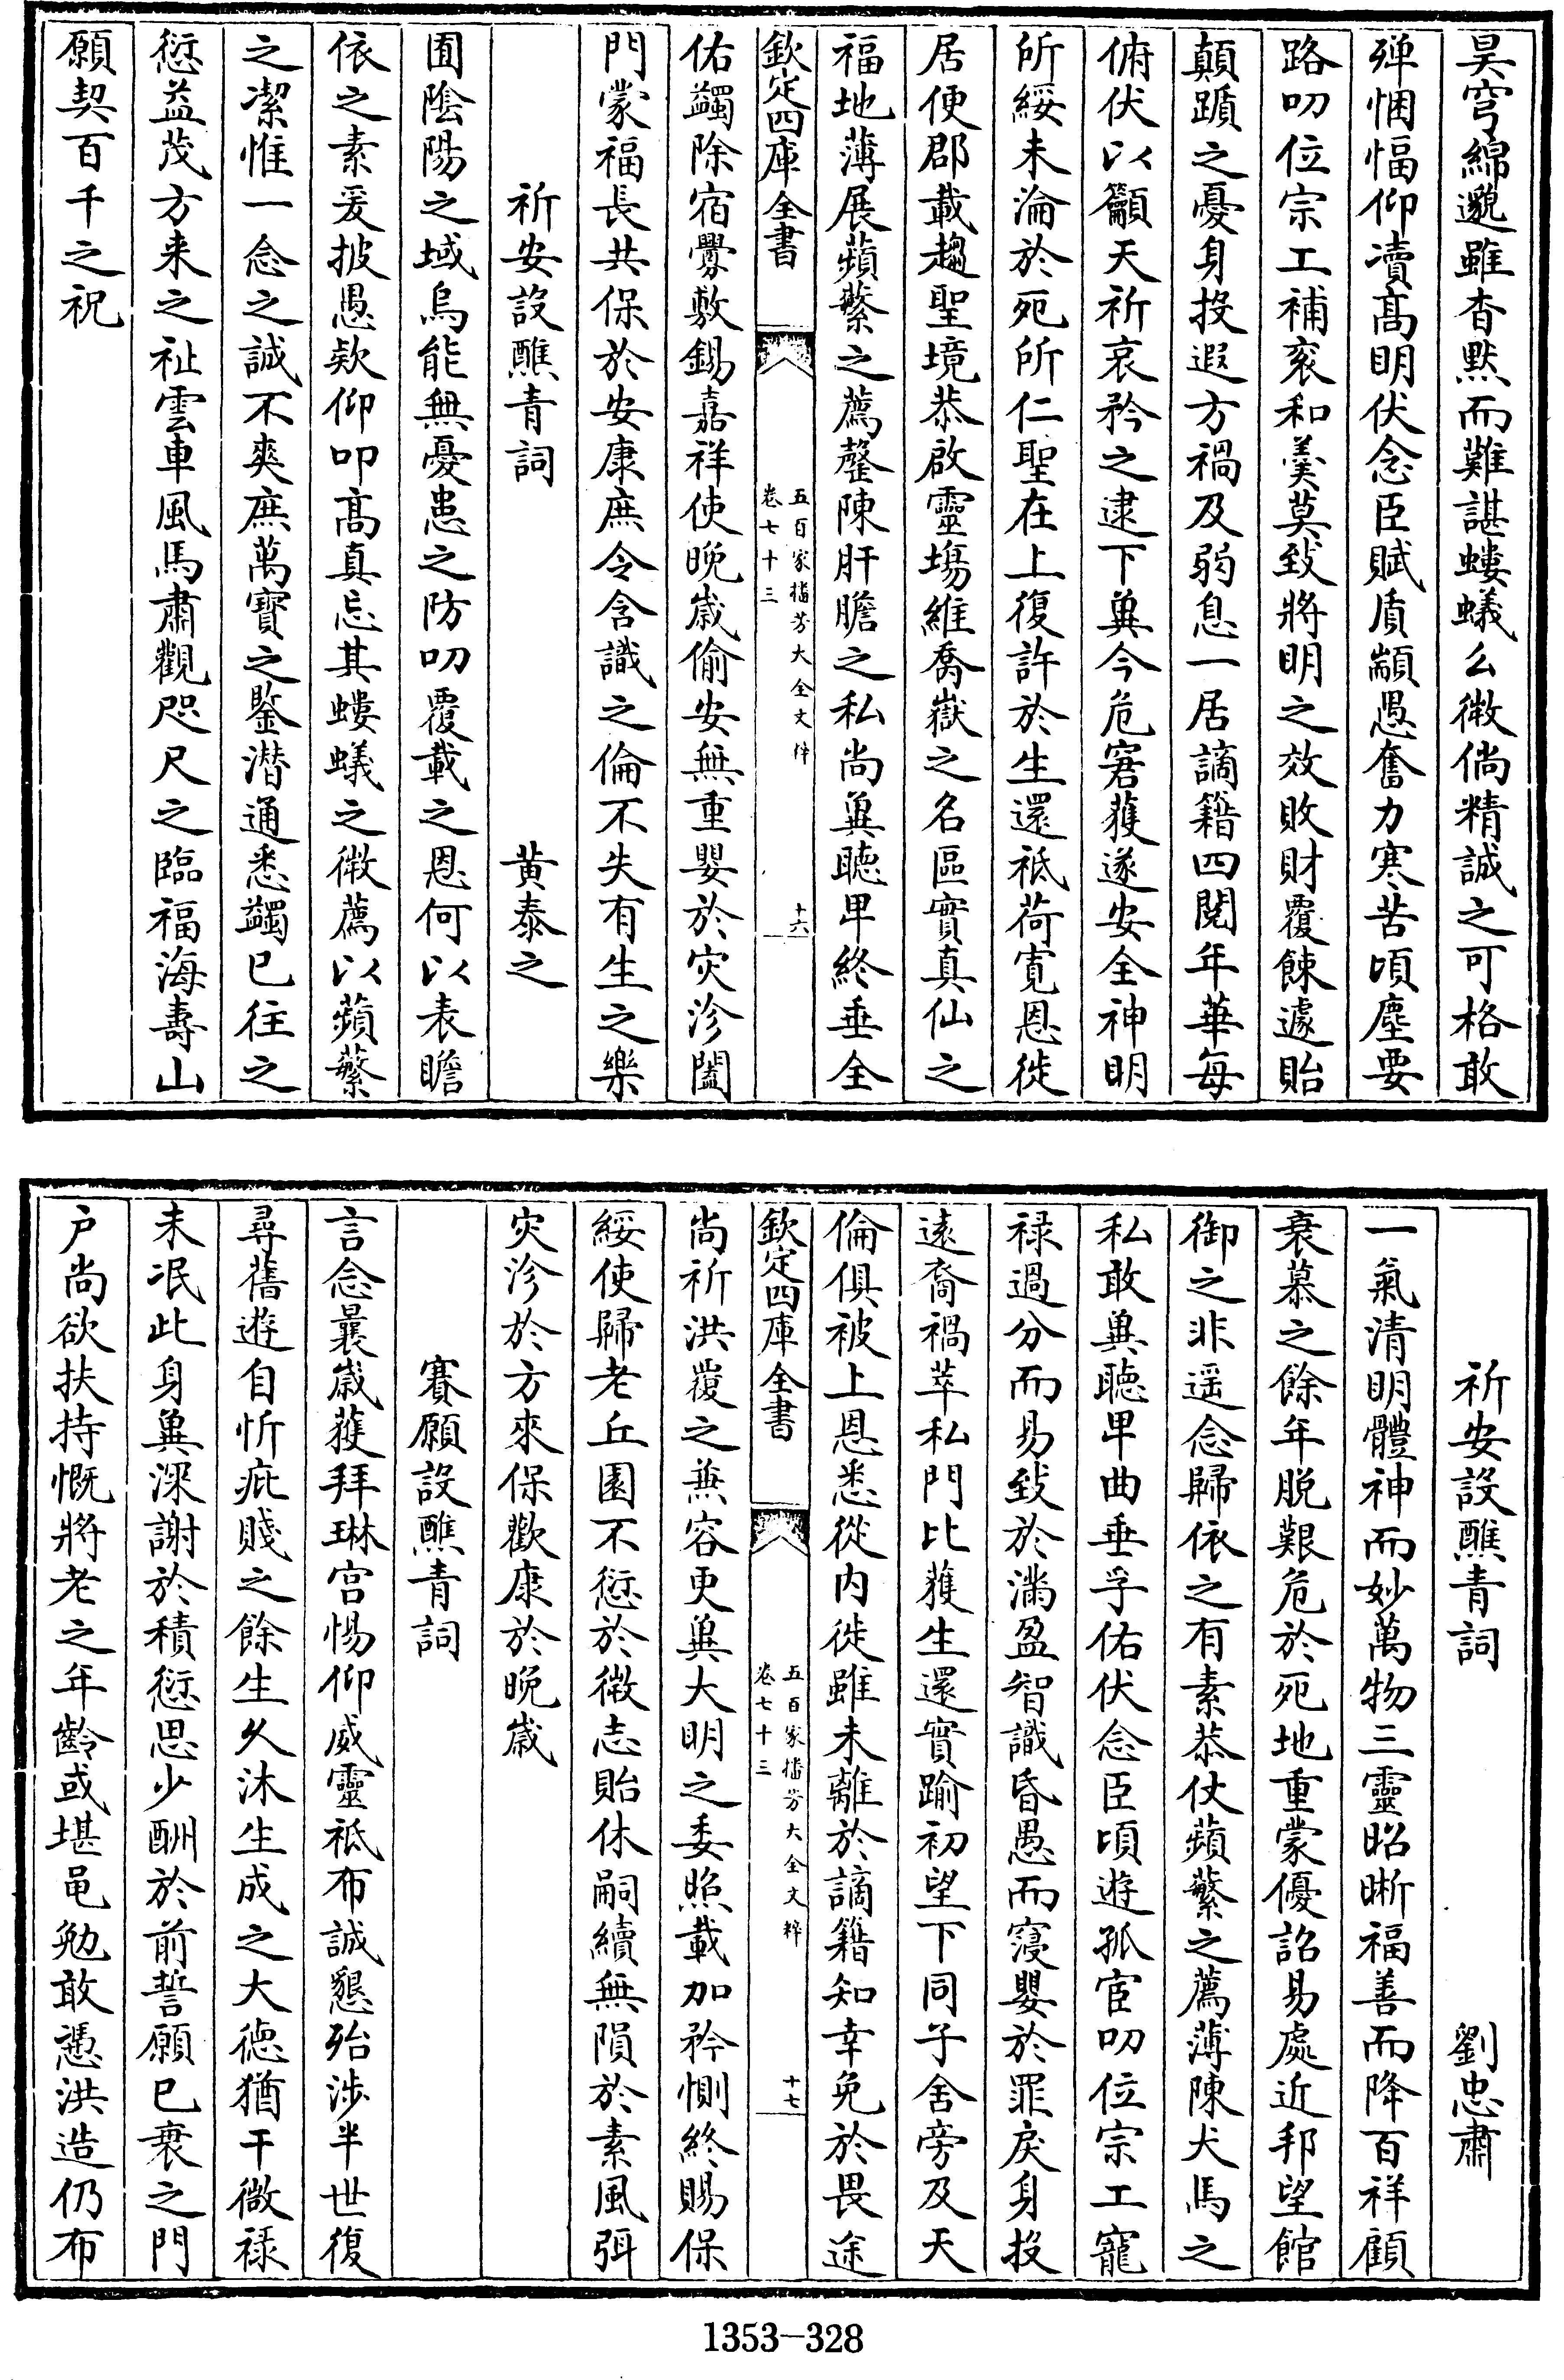 昊穹綿邈雖杳黙而難諶螻蟻么微倘精誠之可格敢
殫悃愊仰瀆髙明伏念臣賦質顓愚奮力寒苦頃塵要
路叨位宗工補衮和羮莫致將明之效敗財覆餗遽貽
顛躓之憂身投遐方禍及弱息一居謫籍四閱年華每
俯伏以籲天祈哀矜之逮下兾今危窘獲遂安全神明
所綏未淪於死所仁聖在上復許於生還祗荷寛恩徙
居便郡載趨聖境恭啟靈塲維喬嶽之名區實真仙之
福地薄展蘋蘩之薦罄陳肝膽之私尚兾聴卑終垂全
欽定四庫全書
五百家播芳大全文粹
卷七十三
十六
佑蠲除宿釁敷錫嘉祥使晚嵗偷安無重嬰於灾沴闔
門蒙福長共保於安康庶令含識之倫不失有生之樂
祈安設醮青詞
黄泰之
囿隂陽之域烏能無憂患之防叨覆載之恩何以表瞻
依之素爰披愚欵仰叩髙真忘其螻蟻之微薦以蘋蘩
之潔惟一念之誠不爽庶萬寳之鑒潜通悉蠲已往之
愆益茂方来之祉雲車風馬肅觀咫尺之臨福海壽山
願契百千之祝
祈安設醮青詞
劉忠肅
一氣清明體神而妙萬物三靈昭晰福善而降百祥顧
衰慕之餘年脱艱危於死地重蒙優詔易處近邦望館
御之非遥念歸依之有素恭仗蘋蘩之薦薄陳犬馬之
私敢兾聴卑曲垂孚佑伏念臣頃遊孤宦叨位宗工寵
禄過分而易致於滿盈智識昏愚而寖嬰於罪戾身投
逺裔禍萃私門比獲生還實踰初望下同子舍旁及天
倫俱被上恩悉從内徙雖未離於謫籍知幸免於畏途
欽定四庫全書
五百家播芳大全文粹
卷七十三
十七
尚祈洪覆之兼容更兾大明之委照載加矜惻終賜保
綏使歸老丘園不愆於微志貽休嗣續無隕於素風弭
灾沴於方來保歡康於晚嵗
賽願設醮青詞
言念曩嵗獲拜琳宫惕仰威靈祗布誠懇殆渉半世復
尋舊遊自忻疵賤之餘生久沐生成之大徳猶干微禄
未泯此身兾深謝於積愆思少酬於前誓願已衰之門
户尚欲扶持慨將老之年齡或堪黽勉敢憑洪造仍布
1353-328